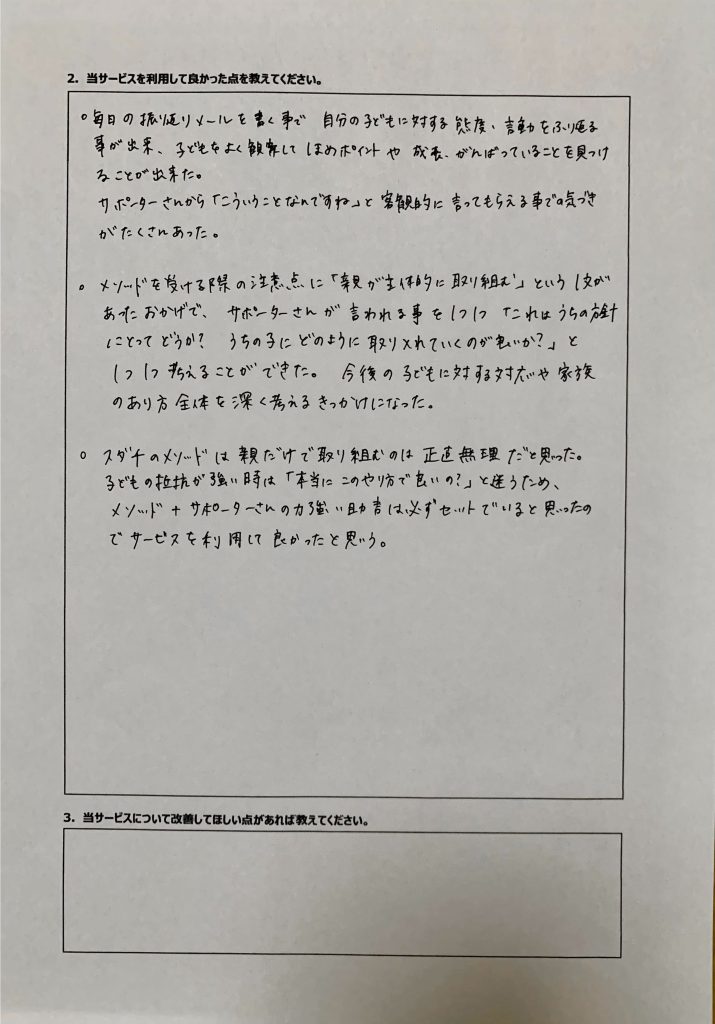 2. 当サービスを利用して良かった点を教えてください。
○毎日の振り返りメールを書く事で 自分の子どもに対する態度、言動をふり返る
事が出来、子どもをよく観察して ほめポイントや 成長、がんばっていることを見つけ
ることが出来た。
サポーターさんから「こういうことなんですね」と 客観的に言ってもらえる事での気づき
がたくさんあった。
○ メソッドを受ける際の注意点に「親が主体的に取り組む」という1文が
あったおかげで、サポーターさんが 言われる事を1つ1つ「これはうちの方針
にとってどうか? うちの子にどのように取り入れていくのが良いか?」と
1つ1つ考えることができた。 今後の子どもに対する対応や家族
のあり方全体を深く考えるきっかけになった。
○ スダチのメソッドは親だけで取り組むのは 正直無理だと思った。
子どもの抵抗が強い時は「本当にこのやり方で良いの?」と迷うため、
メソッド+サポーターさんの力強い助言は必ずセットでいると思ったの
でサービスを利用して良かったと思う。
3. 当サービスについて改善してほしい点があれば教えてください。